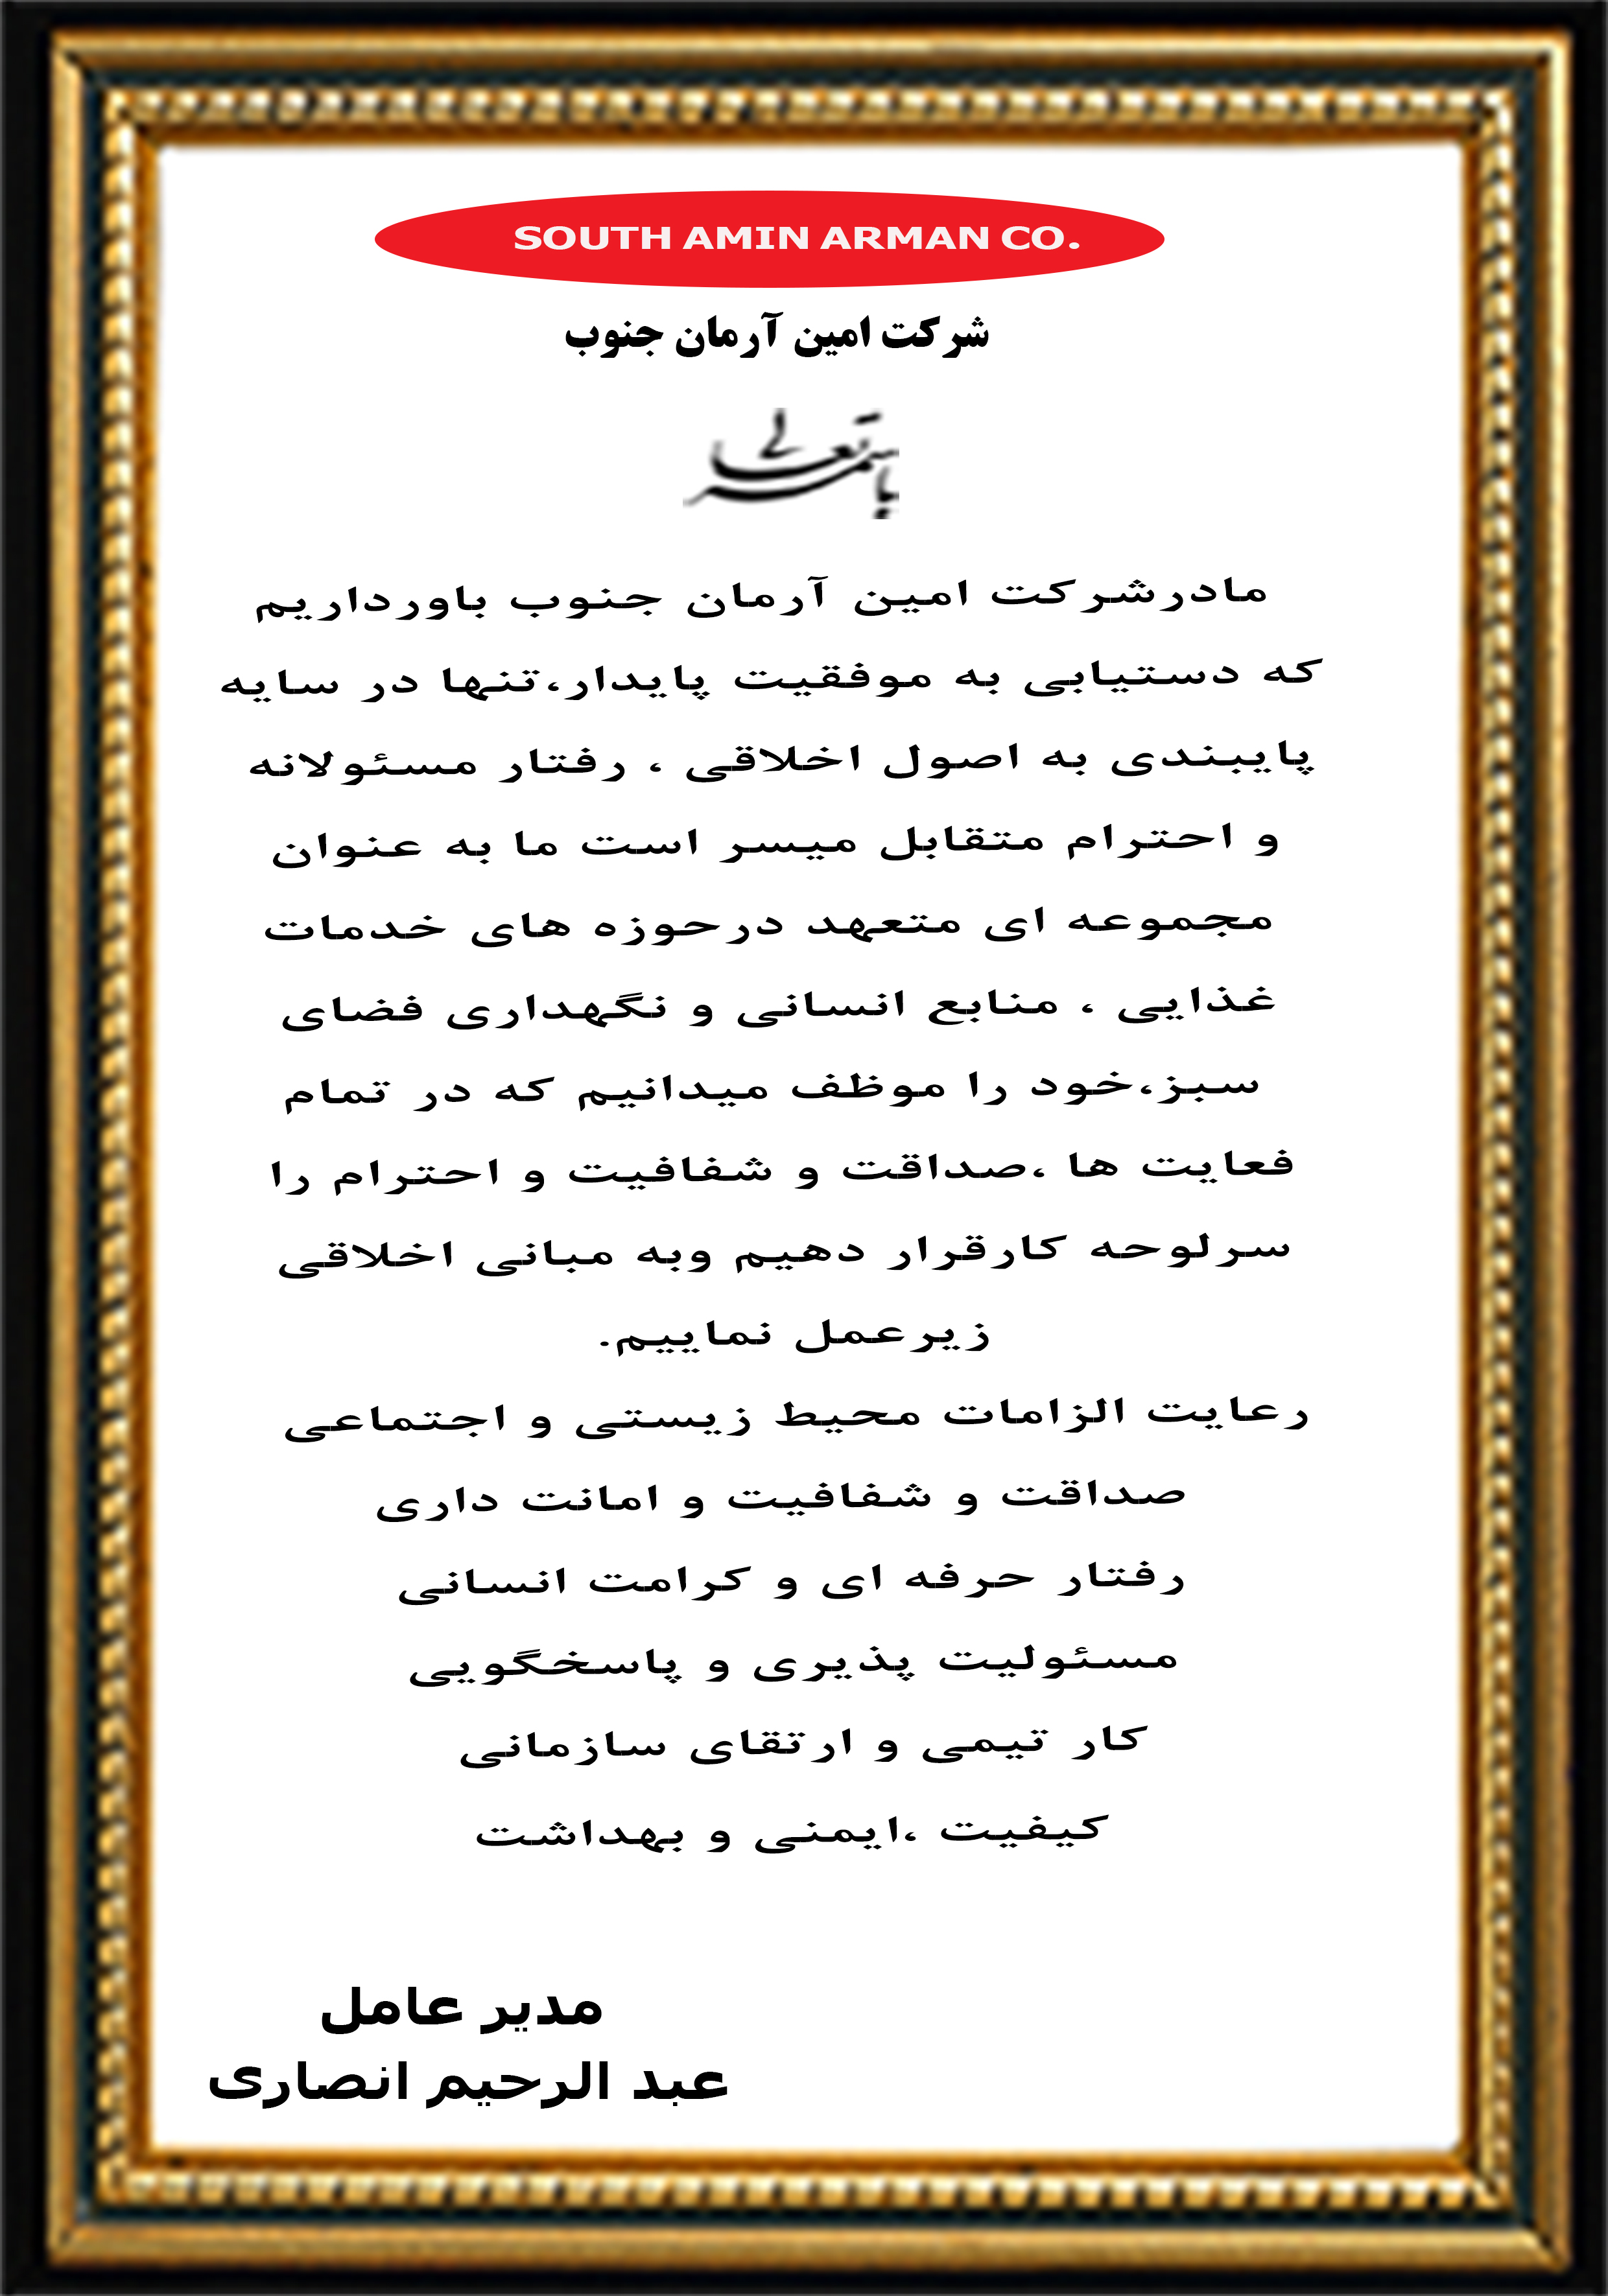 SOUTH AMIN ARMAN CO.
شرکت امین آرمان جنوب
باسمه تعالی
مادرشرکت امین آرمان جنوب باورداریم
که دستیابی به موفقیت پایدار،تنها در سایه
پایبندی به اصول اخلاقی ، رفتار مسئولانه
و احترام متقابل میسر است ما به عنوان
مجموعه ای متعهد درحوزه های خدمات
غذایی ، منابع انسانی و نگهداری فضای
سبز،خود را موظف میدانیم که در تمام
فعایت ها ،صداقت و شفافیت و احترام را
سرلوحه کارقرار دهیم وبه مبانی اخلاقی
زیرعمل نماییم.
رعایت الزامات محیط زیستی و اجتماعی
صداقت و شفافیت و امانت داری
رفتار حرفه ای و کرامت انسانی
مسئولیت پذیری و پاسخگویی
کار تیمی و ارتقای سازمانی
کیفیت ،ایمنی و بهداشت
مدیر عامل
عبد الرحیم انصاری